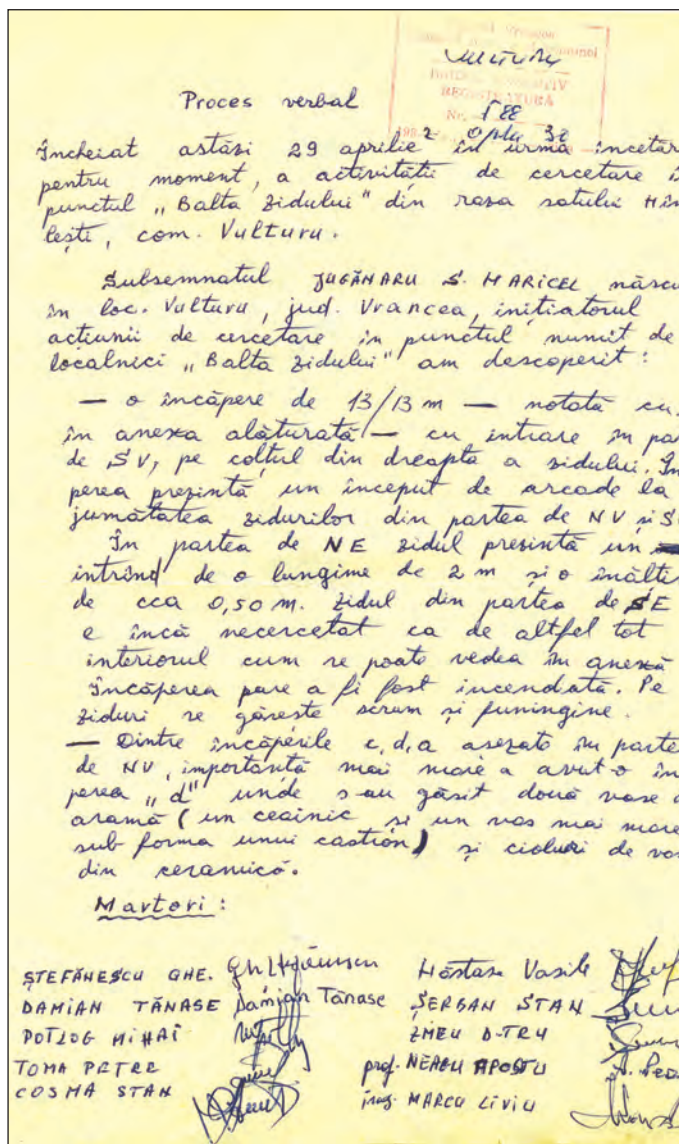 CULTURA
REGISTRATURĂ
Nr. 188
Proces verbal
Încheiat astăzi 29 aprilie în urma încetăr
pentru moment, a activității de cercetare î
punctul „Balta Zidului" din raza satului Hîn
lești, com. Vulturu.
Subsemnatul JUGĂNARU S. MARICEL născu
în loc. Vulturu, jud. Vrancea, inițiatorul
acțiunii de cercetare în punctul numit de
localnici „Balta zidului" am descoperit:
— o încăpere de 13/13 m — notată cu
în anexa alăturată — cu intrare în par
de SV, pe colțul din dreapta a zidului. În
perea prezintă un început de arcade la
jumătatea zidurilor din partea de NV și S
În partea de NE zidul prezintă un
intrînd de o lungime de 2 m și o înălți
de cca 0,50 m. Zidul din partea de SE
e încă necercetat ca de altfel tot
interiorul cum se poate vedea în anexă
Încăperea pare a fi fost incendiată. Pe
ziduri se găsește scrum și funingine.
— Dintre încăperile c, d, a așezate în parte
de NV, importanță mai mare a avut-o în
perea „d" unde s-au găsit două vase d
aramă (un ceainic și un vas mai mare
sub forma unui castron) și cioburi de vas
din ceramică.
Martori:
ȘTEFĂNESCU GHE. Gh Ștefănescu Năstase Vasile
DAMIAN TĂNASE Damian Tănase ȘERBAN STAN
POTLOG MIHAI ZMEU D-TRU
TOMA PETRE prof. NEAGU APOSTU
COSMA STAN ing. MARCU LIVIU